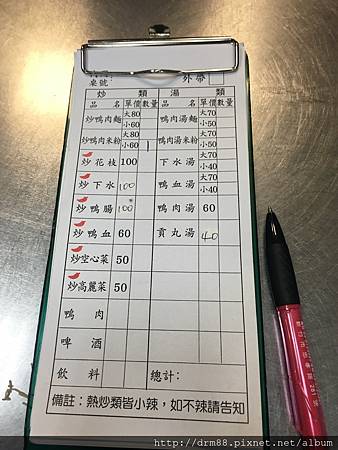 桌號: 外帶
炒 類 湯 類
品 名 單價 數量 品 名 單價 數量
炒鴨肉麵 大80 小60 鴨肉湯麵 大70 小50
炒鴨肉米粉 大80 小60 | 鴨肉湯米粉 大70 小50
炒花枝 100 下水湯 大70 小40
炒下水 100 鴨血湯 大70 小40
炒鴨腸 100 鴨肉湯 60
炒鴨血 60 貢丸湯 40
炒空心菜 50
炒高麗菜 50
鴨 肉
啤 酒
飲 料 總計:
備註:熱炒類皆小辣,如不辣請告知
http://drm88.pixnet.net/album